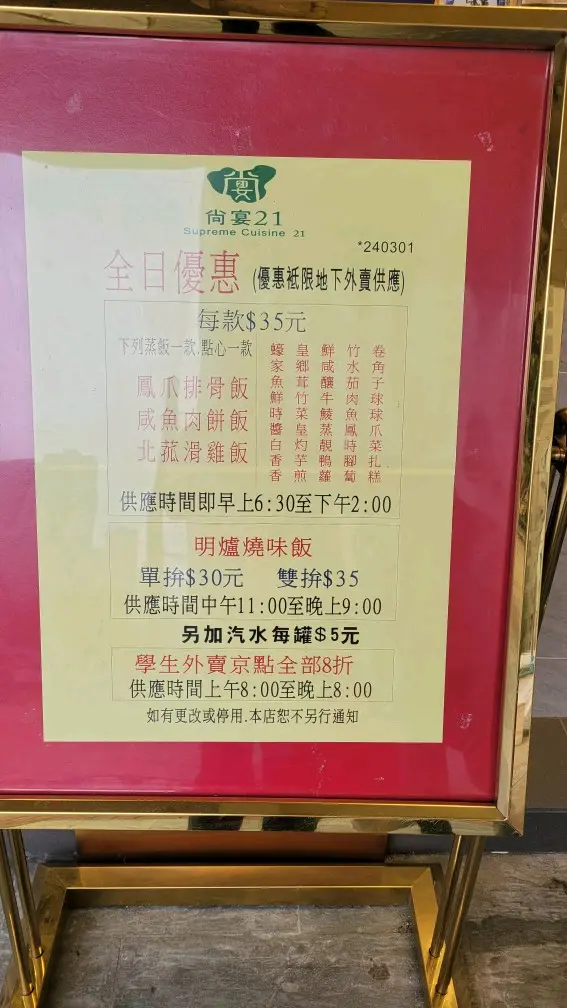 尚宴21
Supreme Cuisine 21
*240301
全日優惠 (優惠衹限地下外賣供應)
每款$35元
下列蒸飯一款.點心一款
鳳爪排骨飯
咸魚肉餅飯
北菰滑雞飯
蠔皇鮮竹卷
家鄉咸水角
魚茸釀茄子
鮮竹牛肉球
時菜鯪魚球
醬皇蒸鳳爪
白灼靚時菜
香芋鴨腳扎
香煎蘿葡糕
供應時間即早上6:30至下午2:00
明爐燒味飯
單拚$30元 雙拚$35
供應時間中午11:00至晚上9:00
另加汽水每罐$5元
學生外賣京點全部8折
供應時間上午8:00至晚上8:00
如有更改或停用.本店恕不另行通知